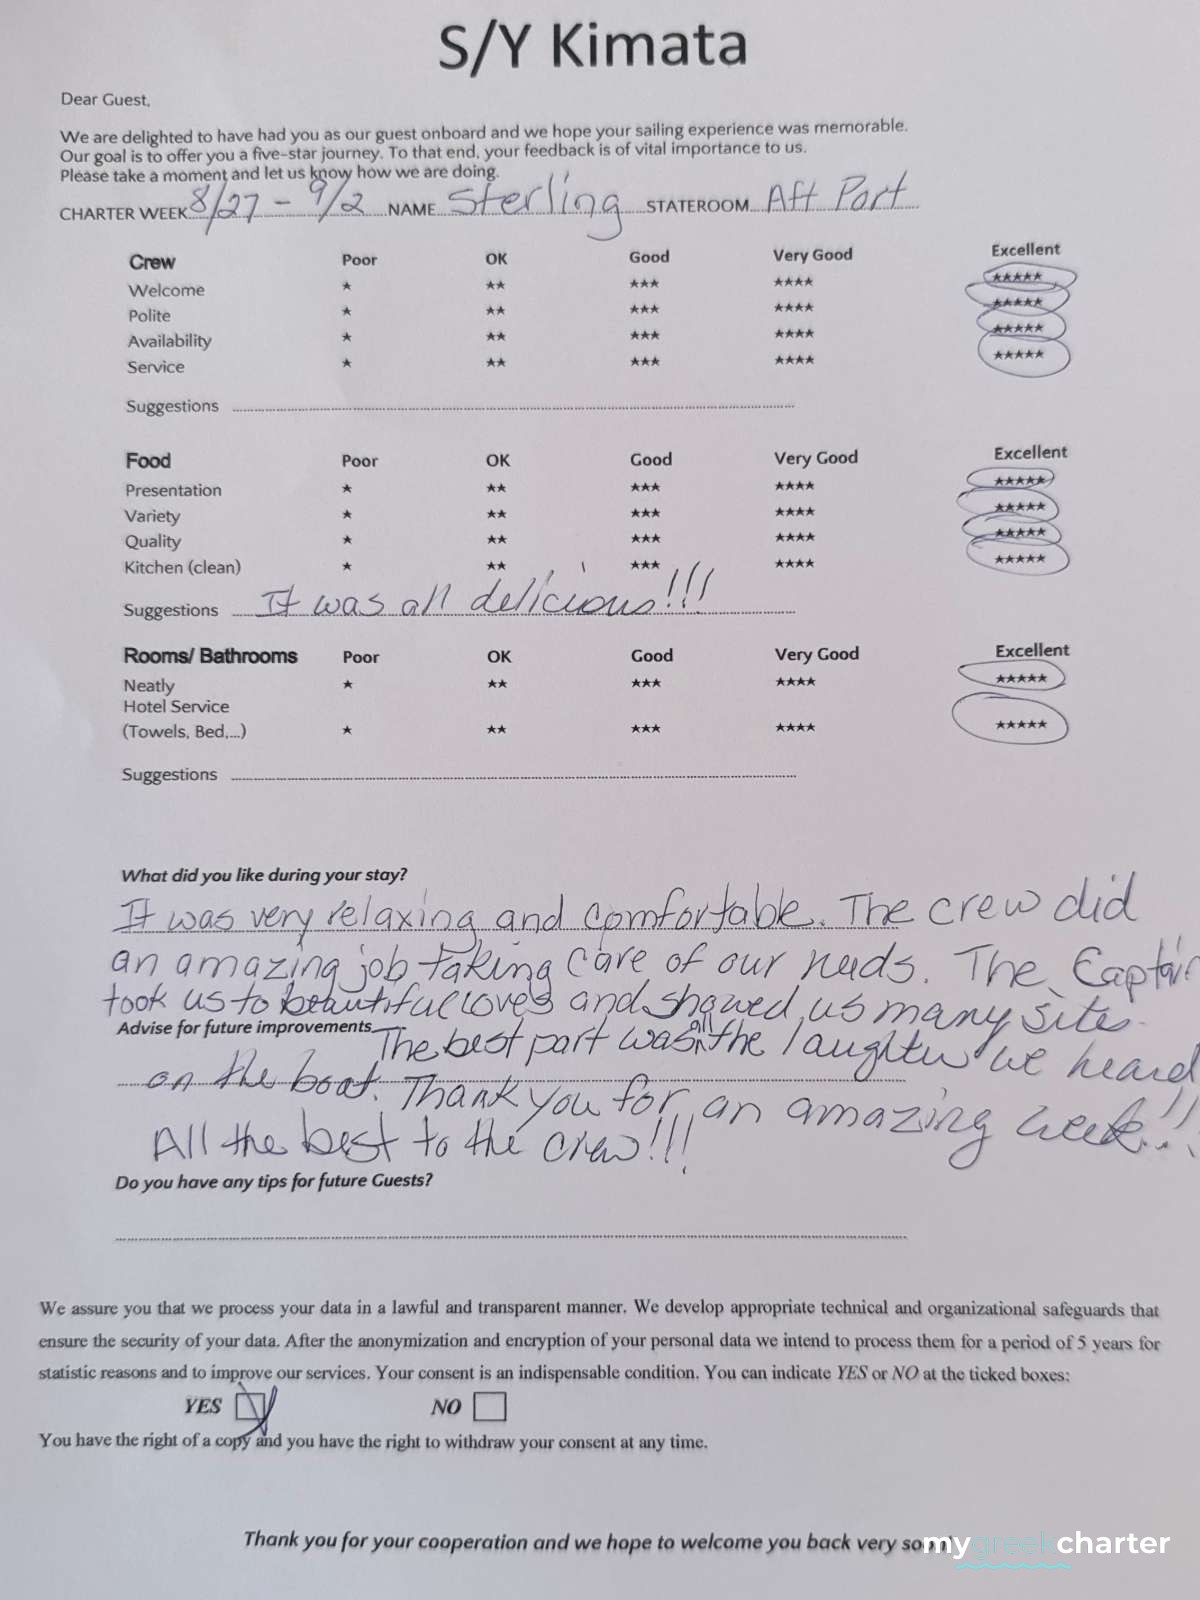 S/Y Kimata
Dear Guest,
We are delighted to have had you as our guest onboard and we hope your sailing experience was memorable.
Our goal is to offer you a five-star journey. To that end, your feedback is of vital importance to us.
Please take a moment and let us know how we are doing.
CHARTER WEEK 8/27 - 9/2 NAME Sterling STATEROOM Aft Port
Crew Poor OK Good Very Good Excellent
Welcome ★ ★★ ★★★ ★★★★ ★★★★★
Polite ★ ★★ ★★★ ★★★★ ★★★★★
Availability ★ ★★ ★★★ ★★★★ ★★★★★
Service ★ ★★ ★★★ ★★★★ ★★★★★
Suggestions
Food Poor OK Good Very Good Excellent
Presentation ★ ★★ ★★★ ★★★★ ★★★★★
Variety ★ ★★ ★★★ ★★★★ ★★★★★
Quality ★ ★★ ★★★ ★★★★ ★★★★★
Kitchen (clean) ★ ★★ ★★★ ★★★★ ★★★★★
Suggestions It was all delicious!!!
Rooms/ Bathrooms Poor OK Good Very Good Excellent
Neatly ★ ★★ ★★★ ★★★★ ★★★★★
Hotel Service
(Towels, Bed,...) ★ ★★ ★★★ ★★★★ ★★★★★
Suggestions
What did you like during your stay?
It was very relaxing and comfortable. The crew did
an amazing job taking care of our needs. The Captain
took us to beautiful coves and showed us many sites.
Advise for future improvements The best part was all the laughter we heard
on the boat. Thank you for an amazing week!!
All the best to the crew!!!
Do you have any tips for future Guests?
We assure you that we process your data in a lawful and transparent manner. We develop appropriate technical and organizational safeguards that
ensure the security of your data. After the anonymization and encryption of your personal data we intend to process them for a period of 5 years for
statistic reasons and to improve our services. Your consent is an indispensable condition. You can indicate YES or NO at the ticked boxes:
YES NO
You have the right of a copy and you have the right to withdraw your consent at any time.
Thank you for your cooperation and we hope to welcome you back very soon
mygreekcharter